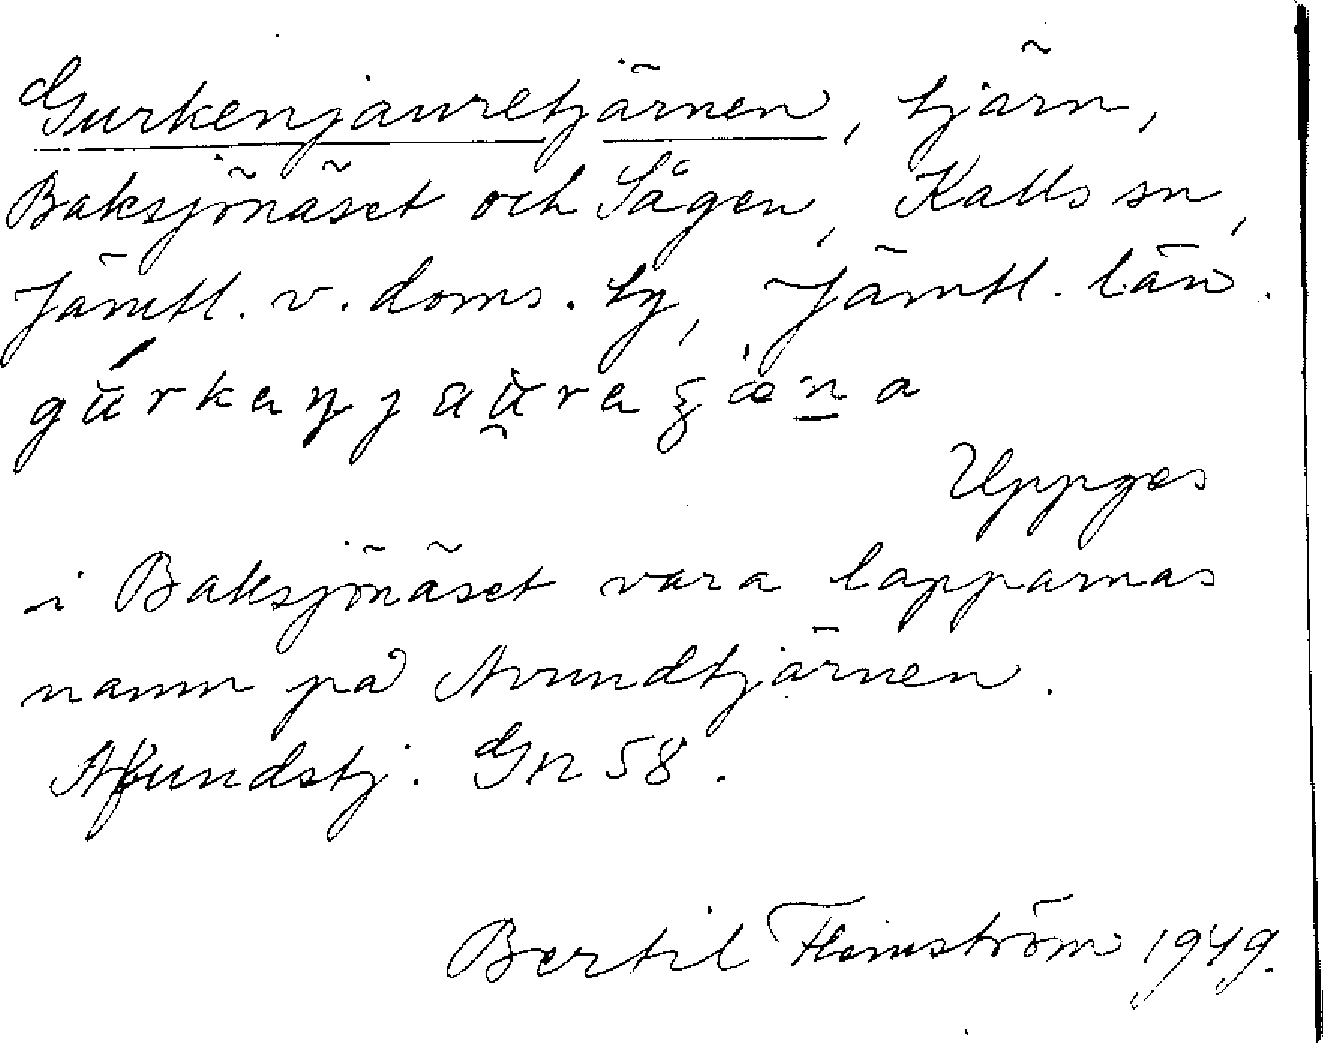 Gurkenjauretjärnen, tjärn,
Baksjönäset och Sågen, Kalls sn,
Jämtl. v. doms. ty, Jämtl. län.
Uppges
i Baksjönäset vara lapparnas
namn på Avundtjärnen.
Afundstj. Gn 58.
Bertil Flemström 1949.